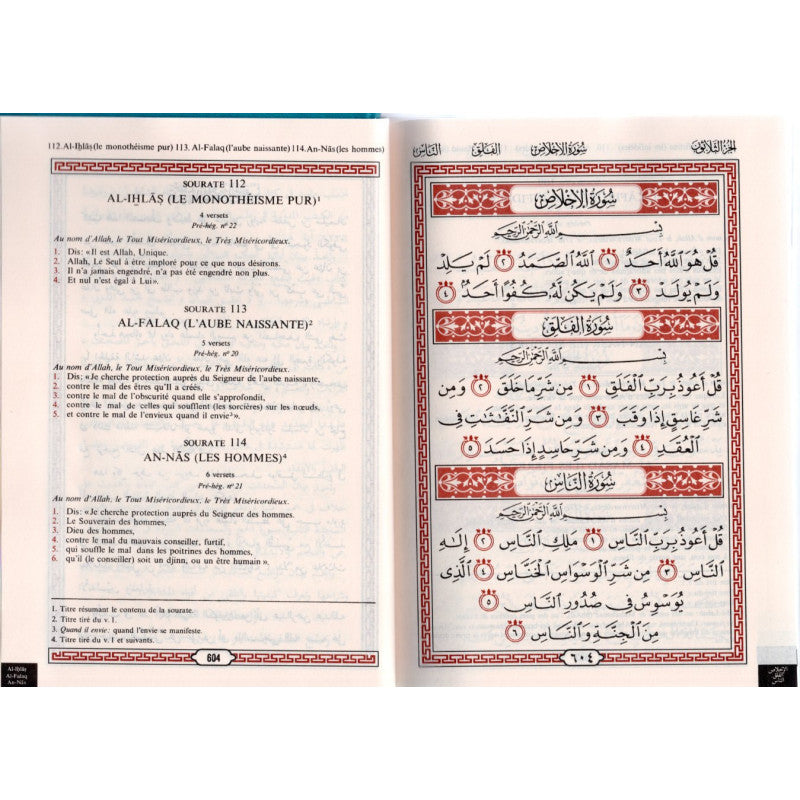 112.Al-Iḫlāṣ(le monothéisme pur) 113. Al-Falaq(l'aube naissante) 114.An-Nās(les hommes)
SOURATE 112
AL-IḪLĀṢ (LE MONOTHÉISME PUR)¹
4 versets
Pré-hég. nº 22
Au nom d'Allah, le Tout Miséricordieux, le Très Miséricordieux.
1. Dis: «Il est Allah, Unique.
2. Allah, Le Seul à être imploré pour ce que nous désirons.
3. Il n'a jamais engendré, n'a pas été engendré non plus.
4. Et nul n'est égal à Lui».
SOURATE 113
AL-FALAQ (L'AUBE NAISSANTE)²
5 versets
Pré-hég. nº 20
Au nom d'Allah, le Tout Miséricordieux, le Très Miséricordieux.
1. Dis: «Je cherche protection auprès du Seigneur de l'aube naissante,
2. contre le mal des êtres qu'Il a créés,
3. contre le mal de l'obscurité quand elle s'approfondit,
4. contre le mal de celles qui soufflent (les sorcières) sur les nœuds,
5. et contre le mal de l'envieux quand il envie³».
SOURATE 114
AN-NĀS (LES HOMMES)⁴
6 versets
Pré-hég. nº 21
Au nom d'Allah, le Tout Miséricordieux, le Très Miséricordieux.
1. Dis: «Je cherche protection auprès du Seigneur des hommes.
2. Le Souverain des hommes,
3. Dieu des hommes,
4. contre le mal du mauvais conseiller, furtif,
5. qui souffle le mal dans les poitrines des hommes,
6. qu'il (le conseiller) soit un djinn, ou un être humain».
1. Titre résumant le contenu de la sourate.
2. Titre tiré du v. 1.
3. Quand il envie: quand l'envie se manifeste.
4. Titre tiré du v. 1 et suivants.
604
Al-Iḫlāṣ
Al-Falaq
An-Nās
الجزء الثلاثون سورة الإخلاص الفلق الناس
سُورَةُ الإِخْلَاصِ
بِسْمِ اللَّهِ الرَّحْمَٰنِ الرَّحِيمِ
قُلْ هُوَ ٱللَّهُ أَحَدٌ ١ ٱللَّهُ ٱلصَّمَدُ ٢ لَمْ يَلِدْ
وَلَمْ يُولَدْ ٣ وَلَمْ يَكُن لَّهُ كُفُوًا أَحَدٌ ٤
سُورَةُ الفَلَقِ
بِسْمِ اللَّهِ الرَّحْمَٰنِ الرَّحِيمِ
قُلْ أَعُوذُ بِرَبِّ ٱلْفَلَقِ ١ مِن شَرِّ مَا خَلَقَ ٢ وَمِن
شَرِّ غَاسِقٍ إِذَا وَقَبَ ٣ وَمِن شَرِّ ٱلنَّفَّٰثَٰتِ فِى
ٱلْعُقَدِ ٤ وَمِن شَرِّ حَاسِدٍ إِذَا حَسَدَ ٥
سُورَةُ النَّاسِ
بِسْمِ اللَّهِ الرَّحْمَٰنِ الرَّحِيمِ
قُلْ أَعُوذُ بِرَبِّ ٱلنَّاسِ ١ مَلِكِ ٱلنَّاسِ ٢ إِلَٰهِ
ٱلنَّاسِ ٣ مِن شَرِّ ٱلْوَسْوَاسِ ٱلْخَنَّاسِ ٤ ٱلَّذِى
يُوَسْوِسُ فِى صُدُورِ ٱلنَّاسِ ٥
مِنَ ٱلْجِنَّةِ وَٱلنَّاسِ ٦
٦٠٤
الإخلاص
الفلق
الناس